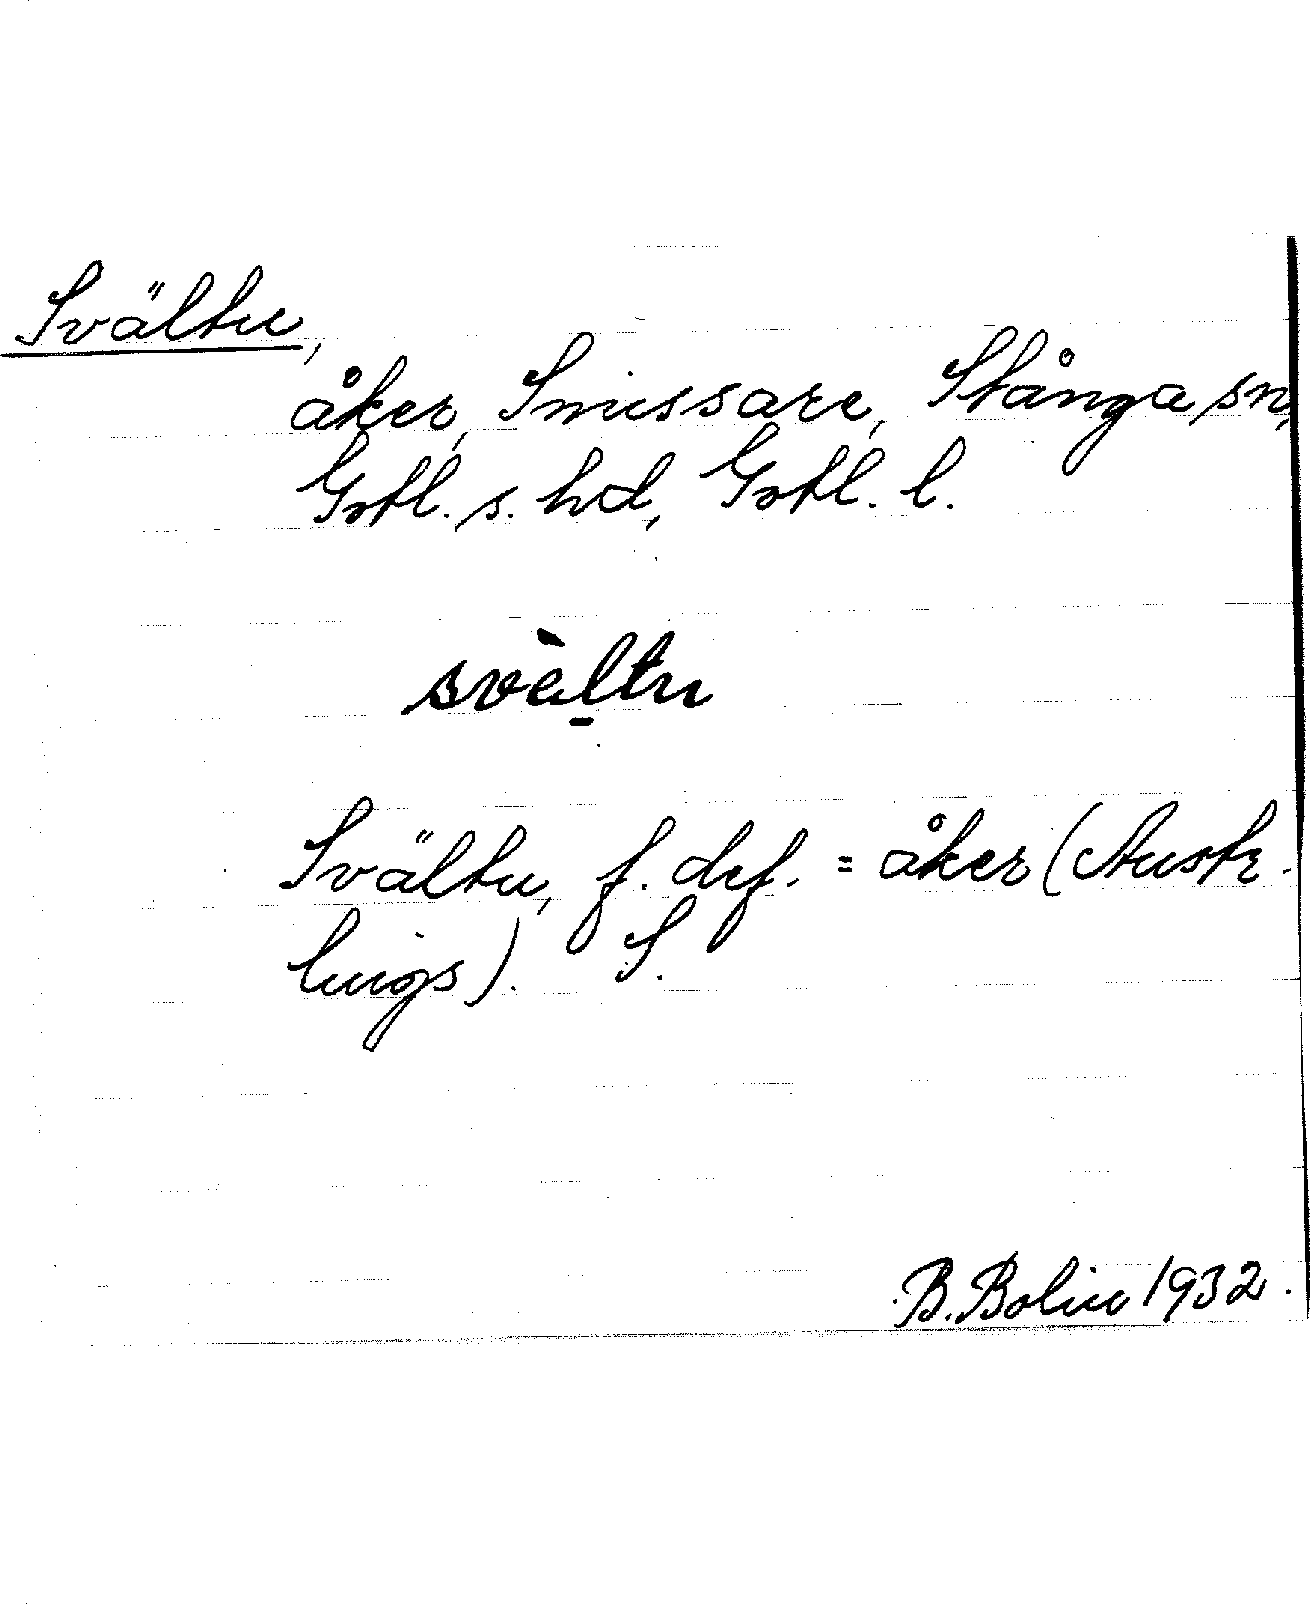 Svältu,
åker, Smissare, Stånga sn,
Gotl. s. hd, Gotl. l.
svèltu
Svältu, f. def. = åker (Austr-
lings). S.
B. Bolin 1932.